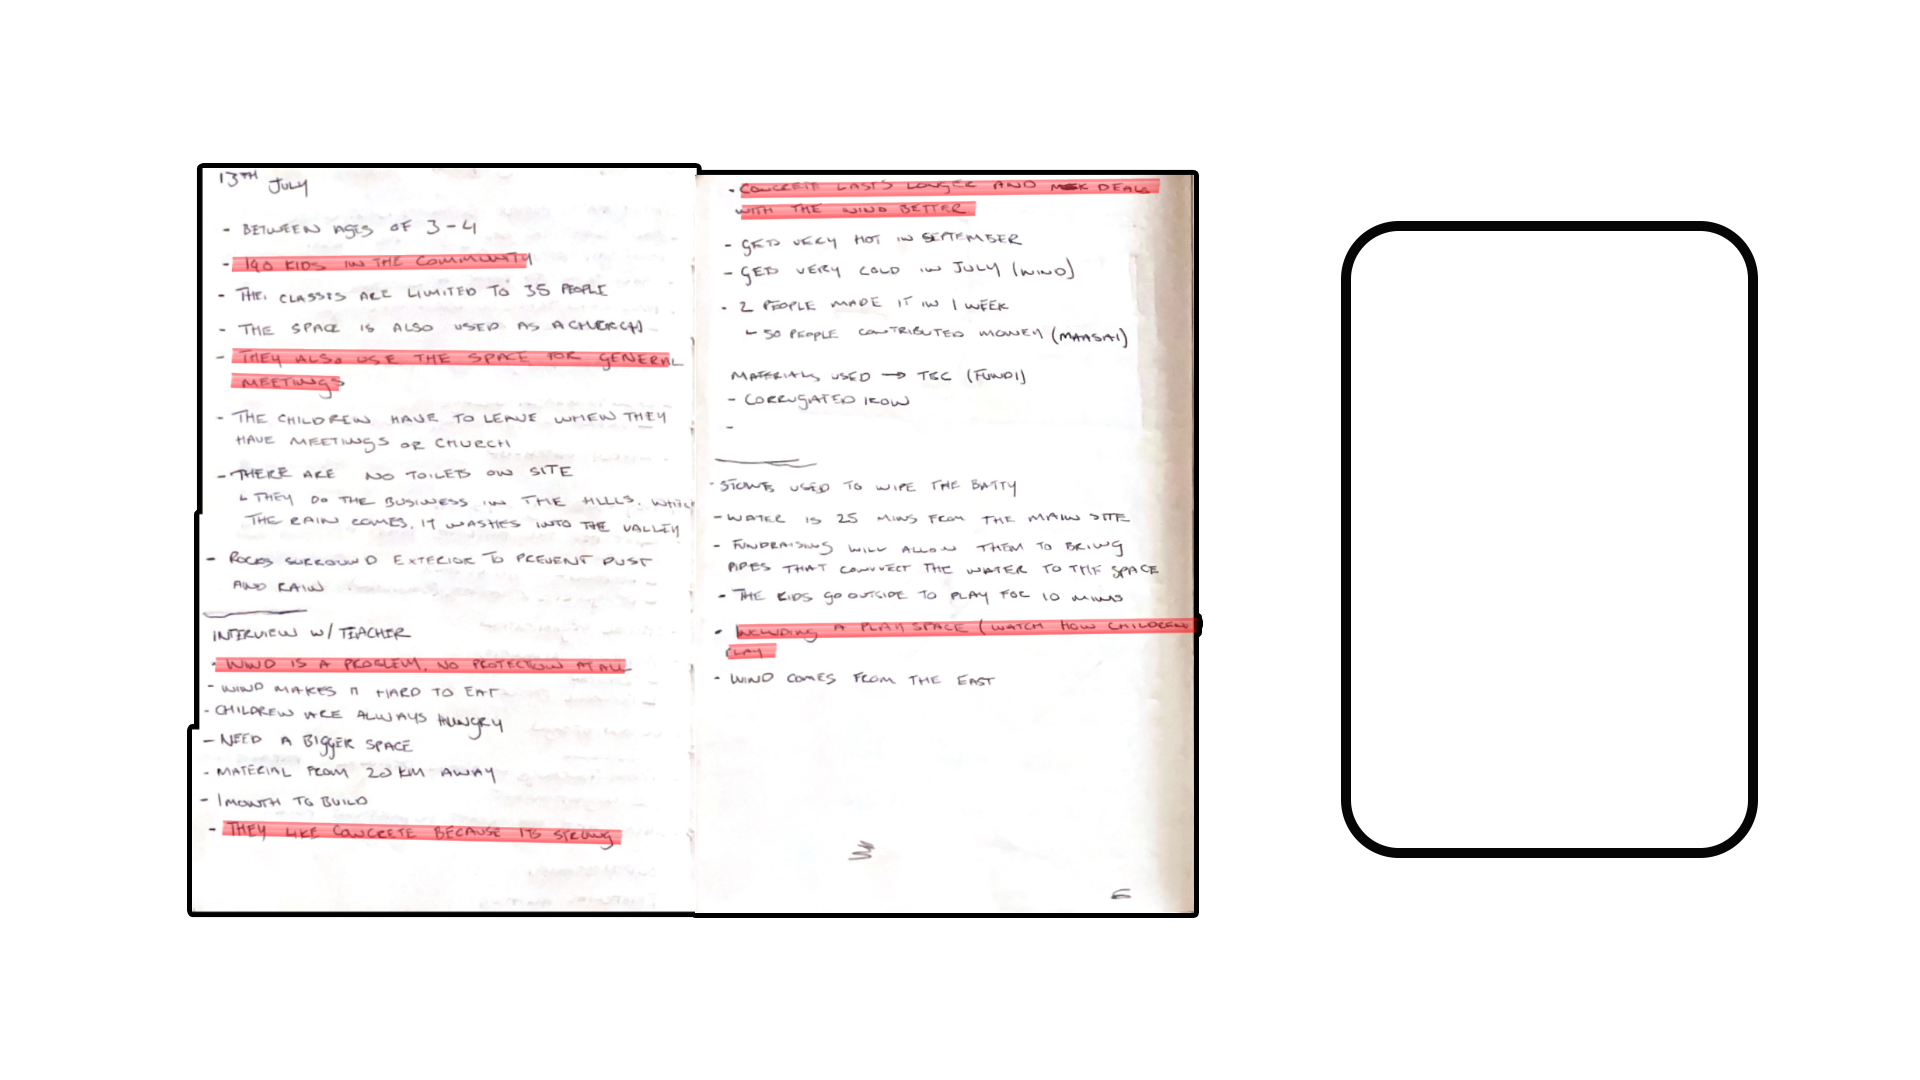 13TH JULY
- BETWEEN AGES OF 3-4
- 190 KIDS IN THE COMMUNITY
- THE CLASSES ARE LIMITED TO 35 PEOPLE
- THE SPACE IS ALSO USED AS A CHURCH
- THEY ALSO USE THE SPACE FOR GENERAL
MEETINGS
- THE CHILDREN HAVE TO LEAVE WHEN THEY
HAVE MEETINGS OR CHURCH
- THERE ARE NO TOILETS ON SITE
↳ THEY DO THE BUSINESS IN THE HILLS.
THE RAIN COMES, IT WASHES INTO THE VALLEY
- ROCKS SURROUND EXTERIOR TO PREVENT DUST
AND RAIN
INTERVIEW W/ TEACHER
- WIND IS A PROBLEM, NO PROTECTION AT ALL
- WIND MAKES IT HARD TO EAT
- CHILDREN ARE ALWAYS HUNGRY
- NEED A BIGGER SPACE
- MATERIAL FROM 20 KM AWAY
- 1 MONTH TO BUILD
- THEY LIKE CONCRETE BECAUSE ITS STRONG
- CONCRETE LASTS LONGER AND DEALS
WITH THE WIND BETTER
- GETS VERY HOT IN SEPTEMBER
- GETS VERY COLD IN JULY (WIND)
- 2 PEOPLE MADE IT IN 1 WEEK
↳ 50 PEOPLE CONTRIBUTED MONEY (MAASAI)
MATERIALS USED → TBC (FUNDI)
- CORRUGATED IRON
-
- STONES USED TO WIPE THE BATTY
- WATER IS 25 MINS FROM THE MAIN SITE
- FUNDRAISING WILL ALLOW THEM TO BRING
PIPES THAT CONNECT THE WATER TO THE SPACE
- THE KIDS GO OUTSIDE TO PLAY FOR 10 MINS
- INCLUDING A PLAY SPACE (WATCH HOW CHILDREN
PLAY
- WIND COMES FROM THE EAST